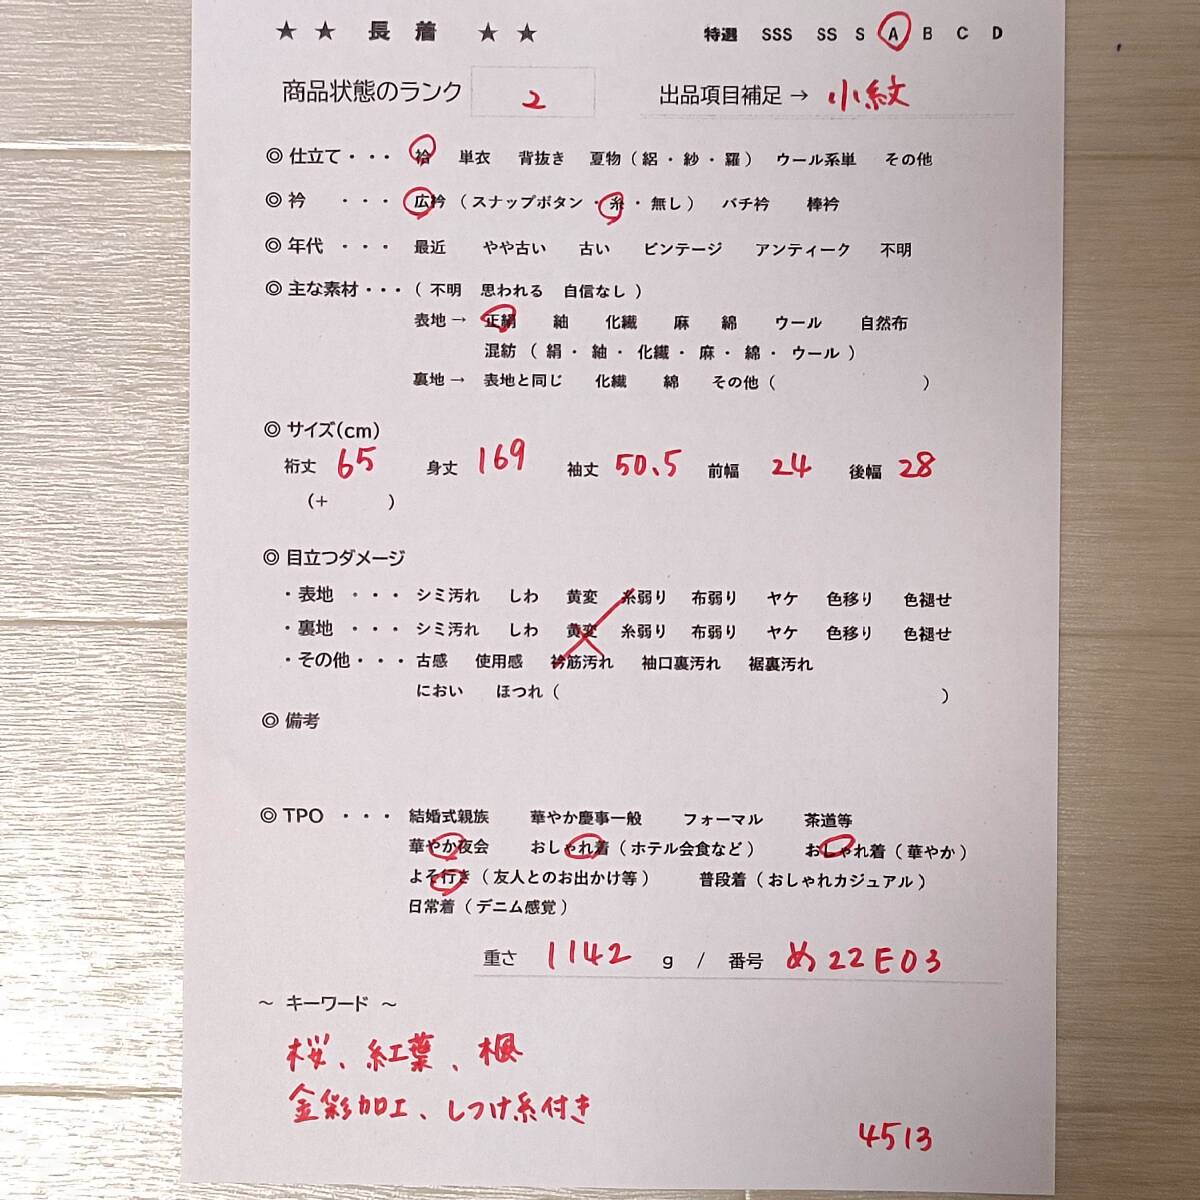 ★ ★ 長 着 ★ ★ 特選 SSS SS S A B C D
商品状態のランク 2 出品項目補足 → 小紋
◎ 仕立て・・・ 袷 単衣 背抜き 夏物（絽・紗・羅） ウール系単 その他
◎ 衿 ・・・ 広衿（スナップボタン・糸・無し） バチ衿 棒衿
◎ 年代 ・・・ 最近 やや古い 古い ビンテージ アンティーク 不明
◎ 主な素材・・・（不明 思われる 自信なし）
表地 → 正絹 紬 化繊 麻 綿 ウール 自然布
混紡（絹・紬・化繊・麻・綿・ウール）
裏地 → 表地と同じ 化繊 綿 その他（ ）
◎ サイズ(cm)
裄丈 65 身丈 169 袖丈 50.5 前幅 24 後幅 28
（+ ）
◎ 目立つダメージ
・表地 ・・・ シミ汚れ しわ 黄変 糸弱り 布弱り ヤケ 色移り 色褪せ
・裏地 ・・・ シミ汚れ しわ 黄変 糸弱り 布弱り ヤケ 色移り 色褪せ
・その他・・・ 古感 使用感 衿筋汚れ 袖口裏汚れ 裾裏汚れ
におい ほつれ（ ）
◎ 備考
◎ TPO ・・・ 結婚式親族 華やか慶事一般 フォーマル 茶道等
華やか夜会 おしゃれ着（ホテル会食など） おしゃれ着（華やか）
よそ行き（友人とのお出かけ等） 普段着（おしゃれカジュアル）
日常着（デニム感覚）
重さ 1142 g / 番号 め22E03
～ キーワード ～
桜、紅葉、楓
金彩加工、しつけ糸付き
4513